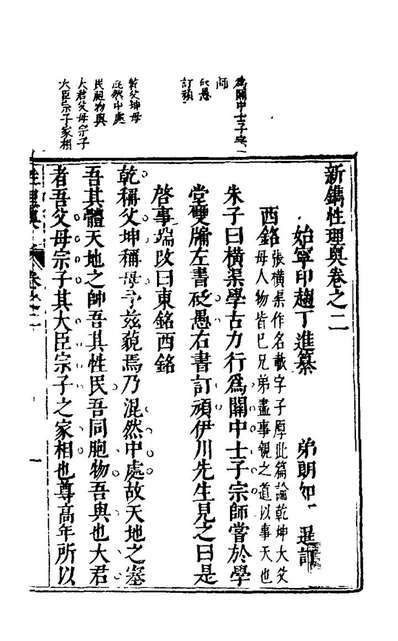 爲關中士子宗
師
砭愚
訂頑
乾父坤母
混然中處
民胞物與
大君父母宗子
大臣宗子家相
新鐫性理奧卷之二
始寧印趙丁進纂 弟朗如
西銘 張橫渠作名載字子厚此篇論乾坤大父
母人物皆己兄弟盡事親之道以事天也
朱子曰橫渠學古力行爲關中士子宗師嘗於學
堂雙牖左書砭愚右書訂頑伊川先生見之曰是
啓事端改曰東銘西銘
乾稱父坤稱母予玆藐焉乃混然中處故天地之塞
吾其體天地之帥吾其性民吾同胞物吾與也大君
者吾父母宗子其大臣宗子之家相也尊高年所以